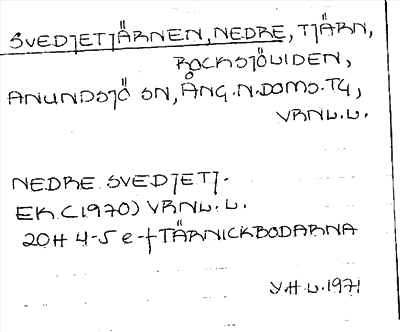 SVEDJETJÄRNEN, NEDRE, TJÄRN,
ROCKSJÖLIDEN,
ANUNDSJÖ SN, ÅNG.N.DOMS.TG,
VRNL.L.
NEDRE SVEDJETJ.
EK.(1970) VRNL.L.
20H 4-5 e-f TÄRNICKBODARNA
Y.H.L.1971